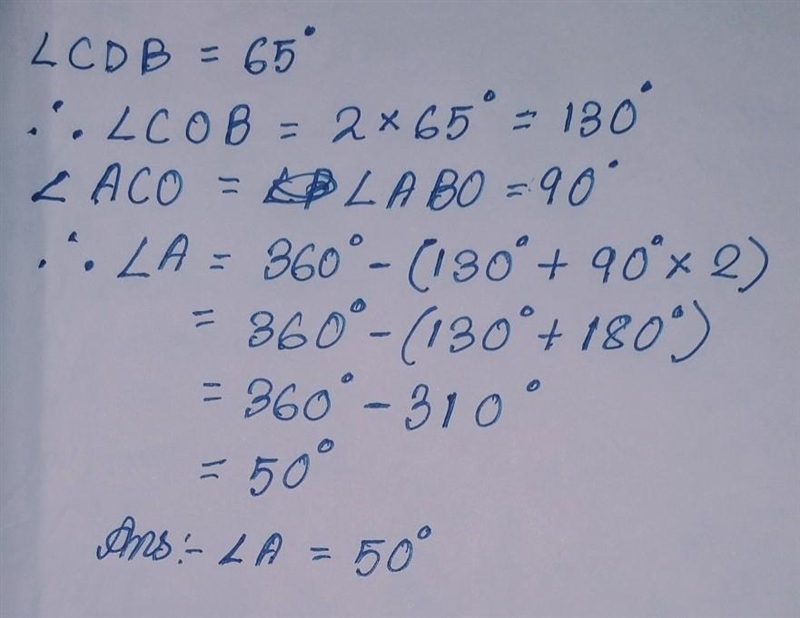 ∠CDB = 65°
∴ ∠COB = 2×65° = 130°
∠ACO = ∠ABO = 90°
∴ ∠A = 360° - (130° + 90° × 2)
= 360° - (130° + 180°)
= 360° - 310°
= 50°
Ans:- ∠A = 50°